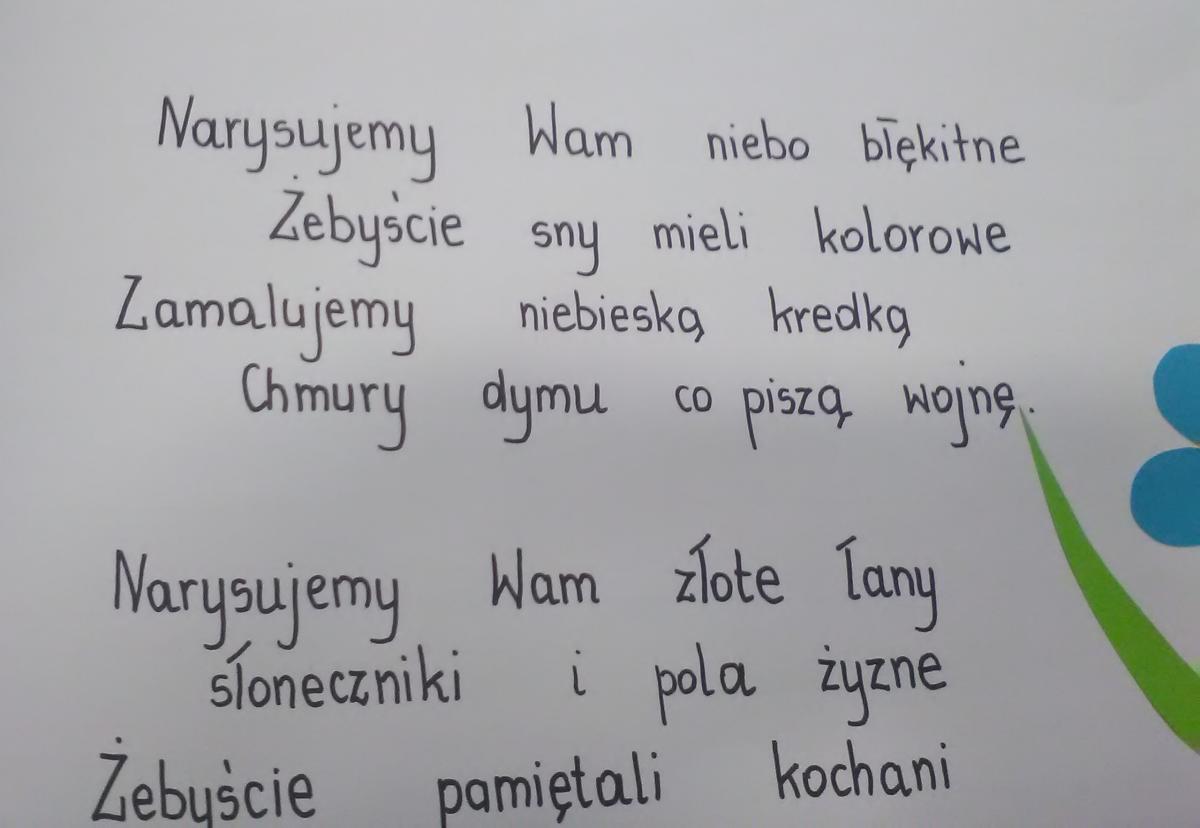 Narysujemy Wam niebo błękitne
Żebyście sny mieli kolorowe
Zamalujemy niebieską kredką
Chmury dymu co piszą wojnę.
Narysujemy Wam złote łany
słoneczniki i pola żyzne
Żebyście pamiętali kochani